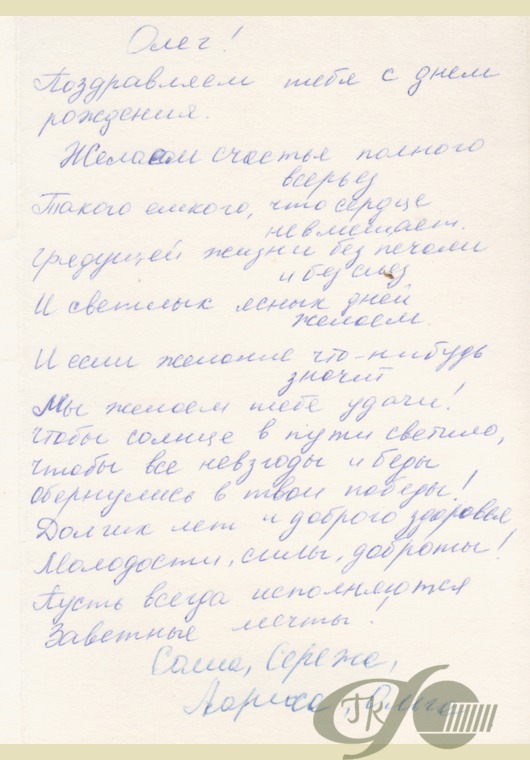 Олег!
Поздравляем тебя с днем
рождения.
Желаем счастья полного
всерьез
Такого емкого, что сердце
не вмещает.
Грядущей жизни без печали
и без слез
И светлых ясных дней
желаем.
И если желание что-нибудь
значит
Мы желаем тебе удачи!
Чтобы солнце в пути светило,
Чтобы все невзгоды и беды
Обернулись в твои победы!
Долгих лет и доброго здоровья,
Молодости, силы, доброты!
Пусть всегда исполняются
Заветные мечты.
Саша, Сережа,
Лариса, Ольга